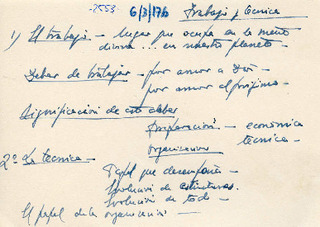 2553 6/3/76 Trabajo y técnica
1) El trabajo – lugar que ocupa en la mente
divina ... en nuestro planeto –
Deber de trabajar – por amor a Dios –
por amor al prójimo –
Significación de este deber
Preparación – económica
técnica –
Organización
2º La técnica –
Papel que desempeña –
Evolución de estructuras.
Evolución de todo –
El papel de la organización –